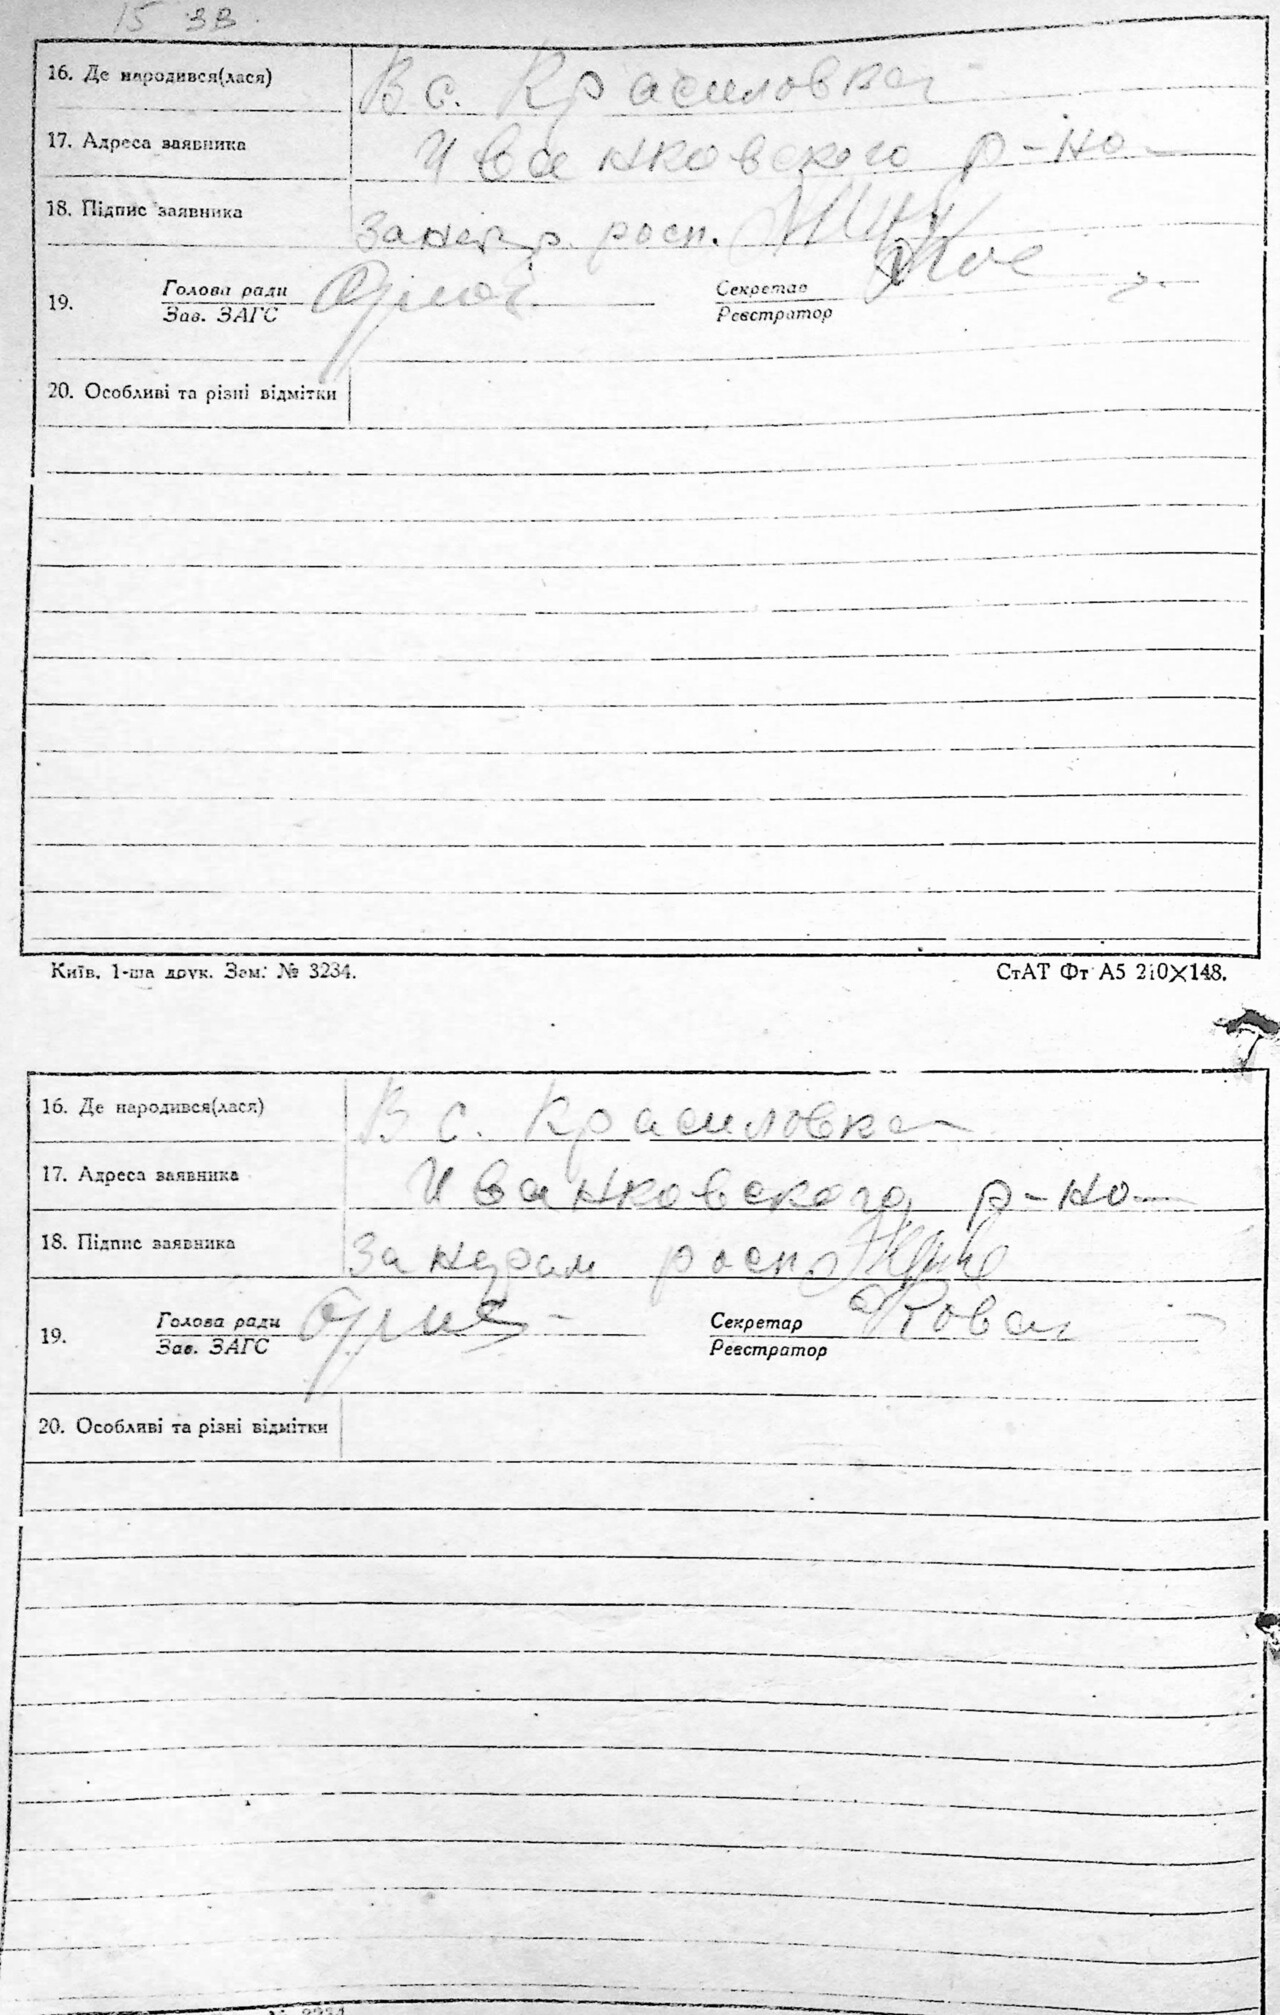 15 зв.
16. Де народився(лася) В с. Красиловка
17. Адреса заявника Иванковского р-на
18. Підпис заявника росп.
19. Голова ради Секретар
Зав. ЗАГС Реєстратор
20. Особливі та різні відмітки
Київ. 1-ша друк. Зам. № 3234. СтАТ Фт А5 210×148.
16. Де народився(лася) В с. Красиловка
17. Адреса заявника Иванковского р-на
18. Підпис заявника росп.
19. Голова ради Секретар
Зав. ЗАГС Реєстратор
20. Особливі та різні відмітки